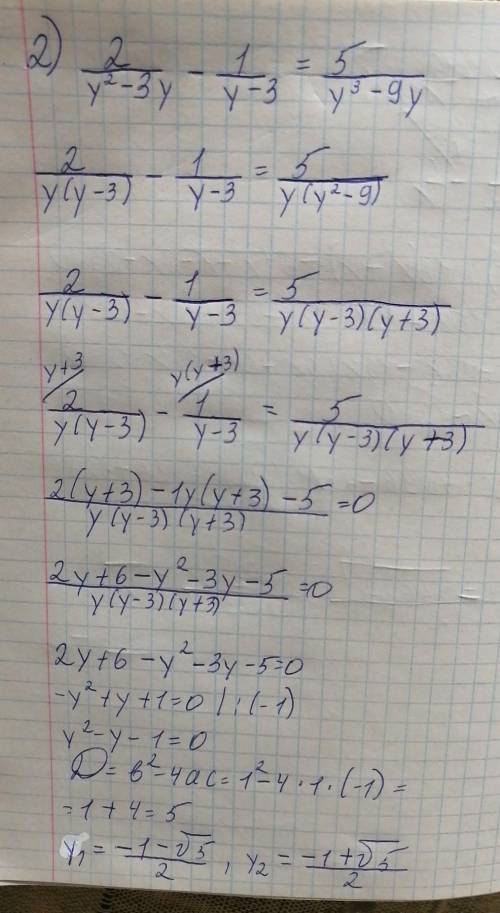 2) 2/(y²-3y) - 1/(y-3) = 5/(y³-9y)
2/(y(y-3)) - 1/(y-3) = 5/(y(y²-9))
2/(y(y-3)) - 1/(y-3) = 5/(y(y-3)(y+3))
y+3 y(y+3)
2/(y(y-3)) - 1/(y-3) = 5/(y(y-3)(y+3))
(2(y+3)-1y(y+3)-5)/(y(y-3)(y+3)) =0
(2y+6-y²-3y-5)/(y(y-3)(y+3)) =0
2y+6-y²-3y-5=0
-y²+y+1=0 |:(-1)
y²-y-1=0
D=в²-4ac=1²-4·1·(-1)=
=1+4=5
y₁=(-1-√5)/2, y₂=(-1+√5)/2